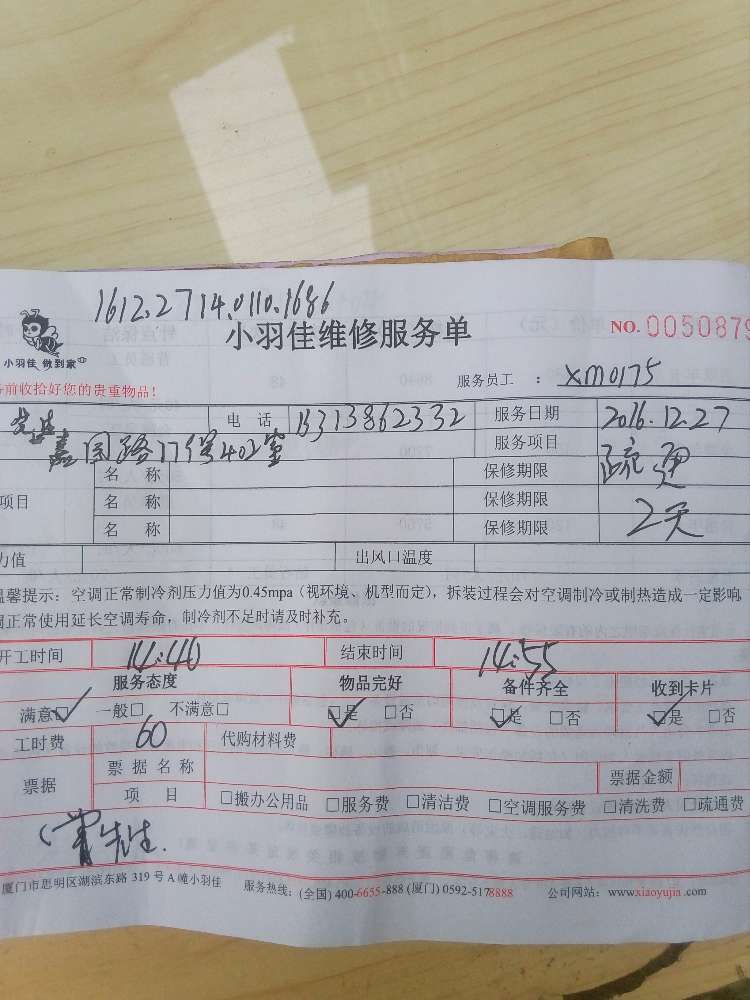 1612.2714.0110.1686
小羽佳维修服务单 NO. 0050879
小羽佳 做到家
前收拾好您的贵重物品！ 服务员工 ： XM0175
先生 电 话 服务日期 2016.12.27
园路17号402室 服务项目 疏通
名 称 保修期限
项目 名 称 保修期限
名 称 保修期限 2天
力值 出风口温度
温馨提示：空调正常制冷剂压力值为0.45mpa（视环境、机型而定），拆装过程会对空调制冷或制热造成一定影响
调正常使用延长空调寿命，制冷剂不足时请及时补充。
开工时间 14:40 结束时间 14:55
服务态度 物品完好 备件齐全 收到卡片
满意☑ 一般□ 不满意□ ☑是 □否 ☑是 □否 ☑是 □否
工时费 60 代购材料费
票据 票据名称 票据金额
项 目 □搬办公用品 □服务费 □清洁费 □空调服务费 □清洗费 □疏通费
先生.
厦门市思明区湖滨东路 319 号 A 幢小羽佳 服务热线：(全国) 400-6655-888 (厦门) 0592-5178888 公司网站：www.xiaoyujia.com